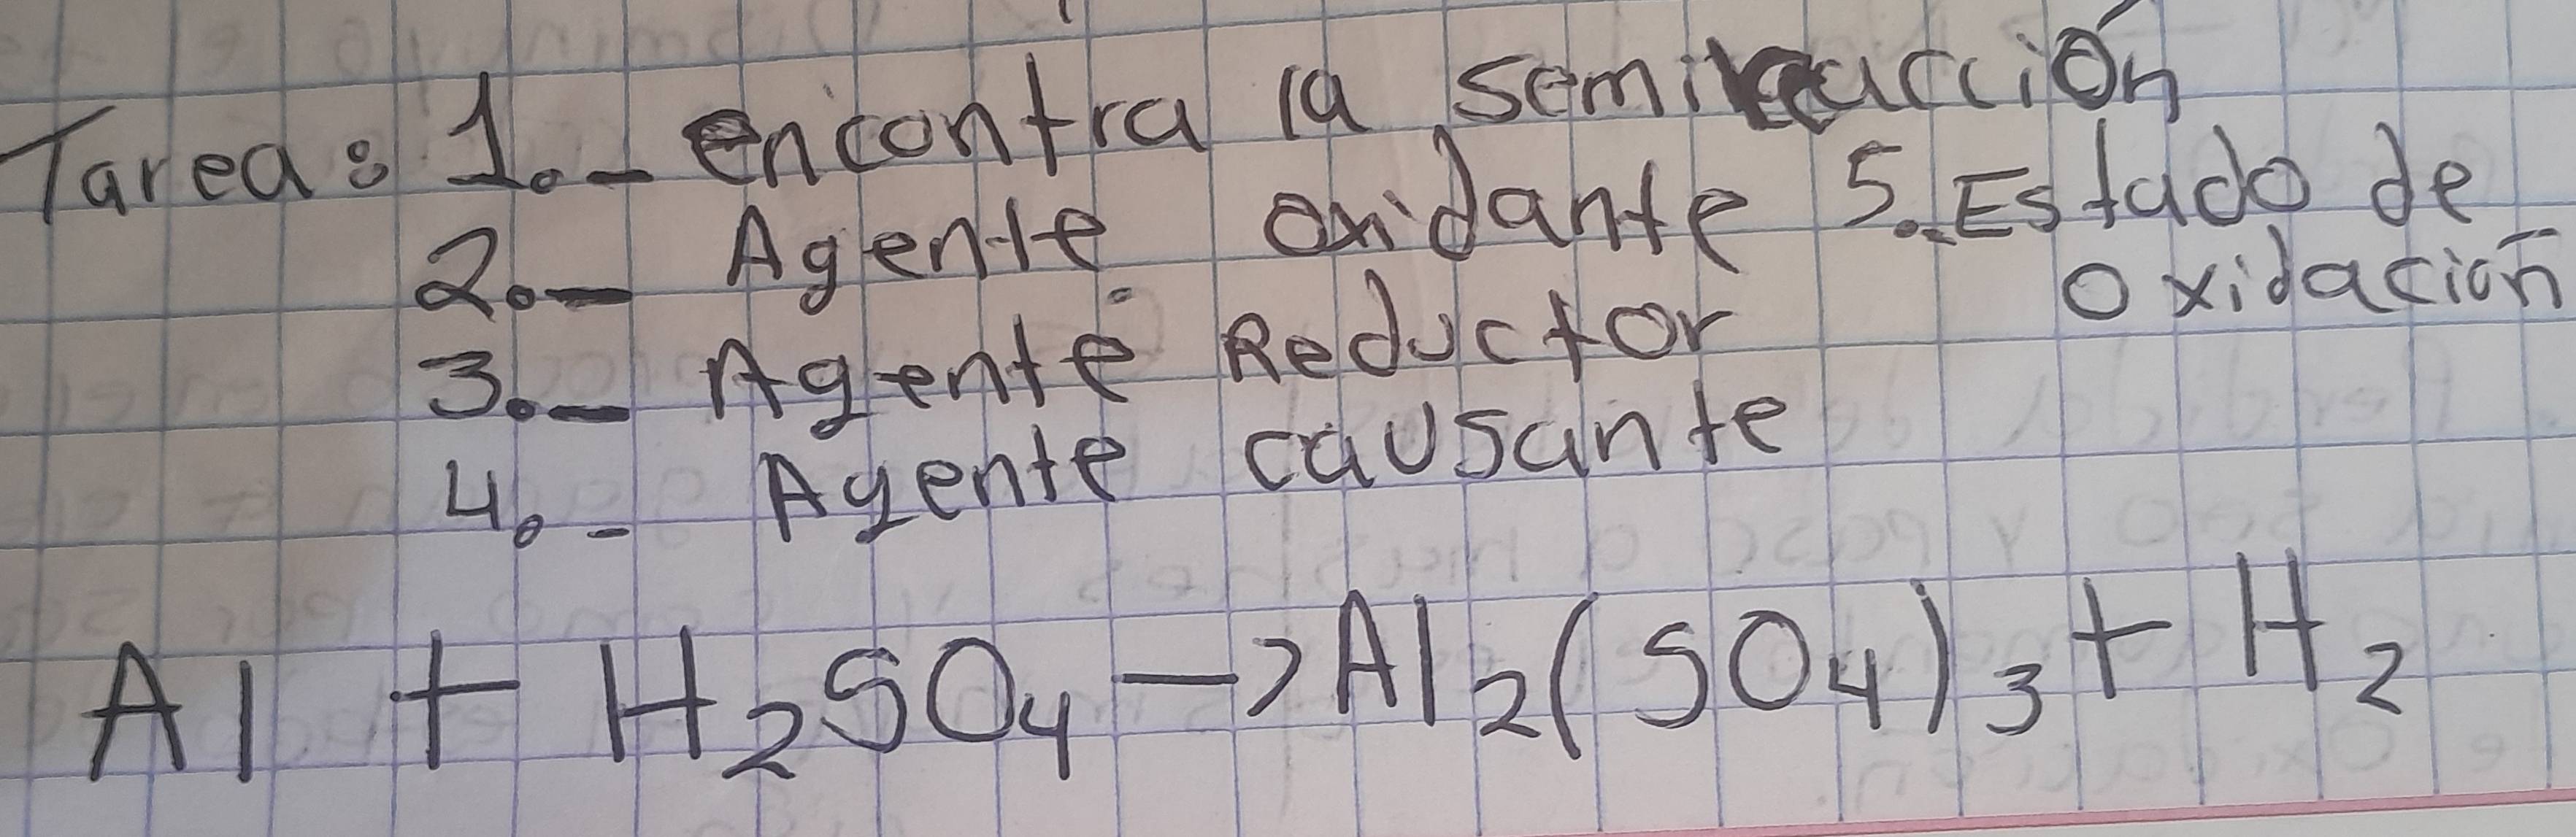 Tarea: 1.- encontra la semireacción
2.- Agente oxidante 5.- Estado de
oxidación
3.- Agente Reductor
4.- Agente causante
Al + H₂SO₄ → Al₂(SO₄)₃ + H₂